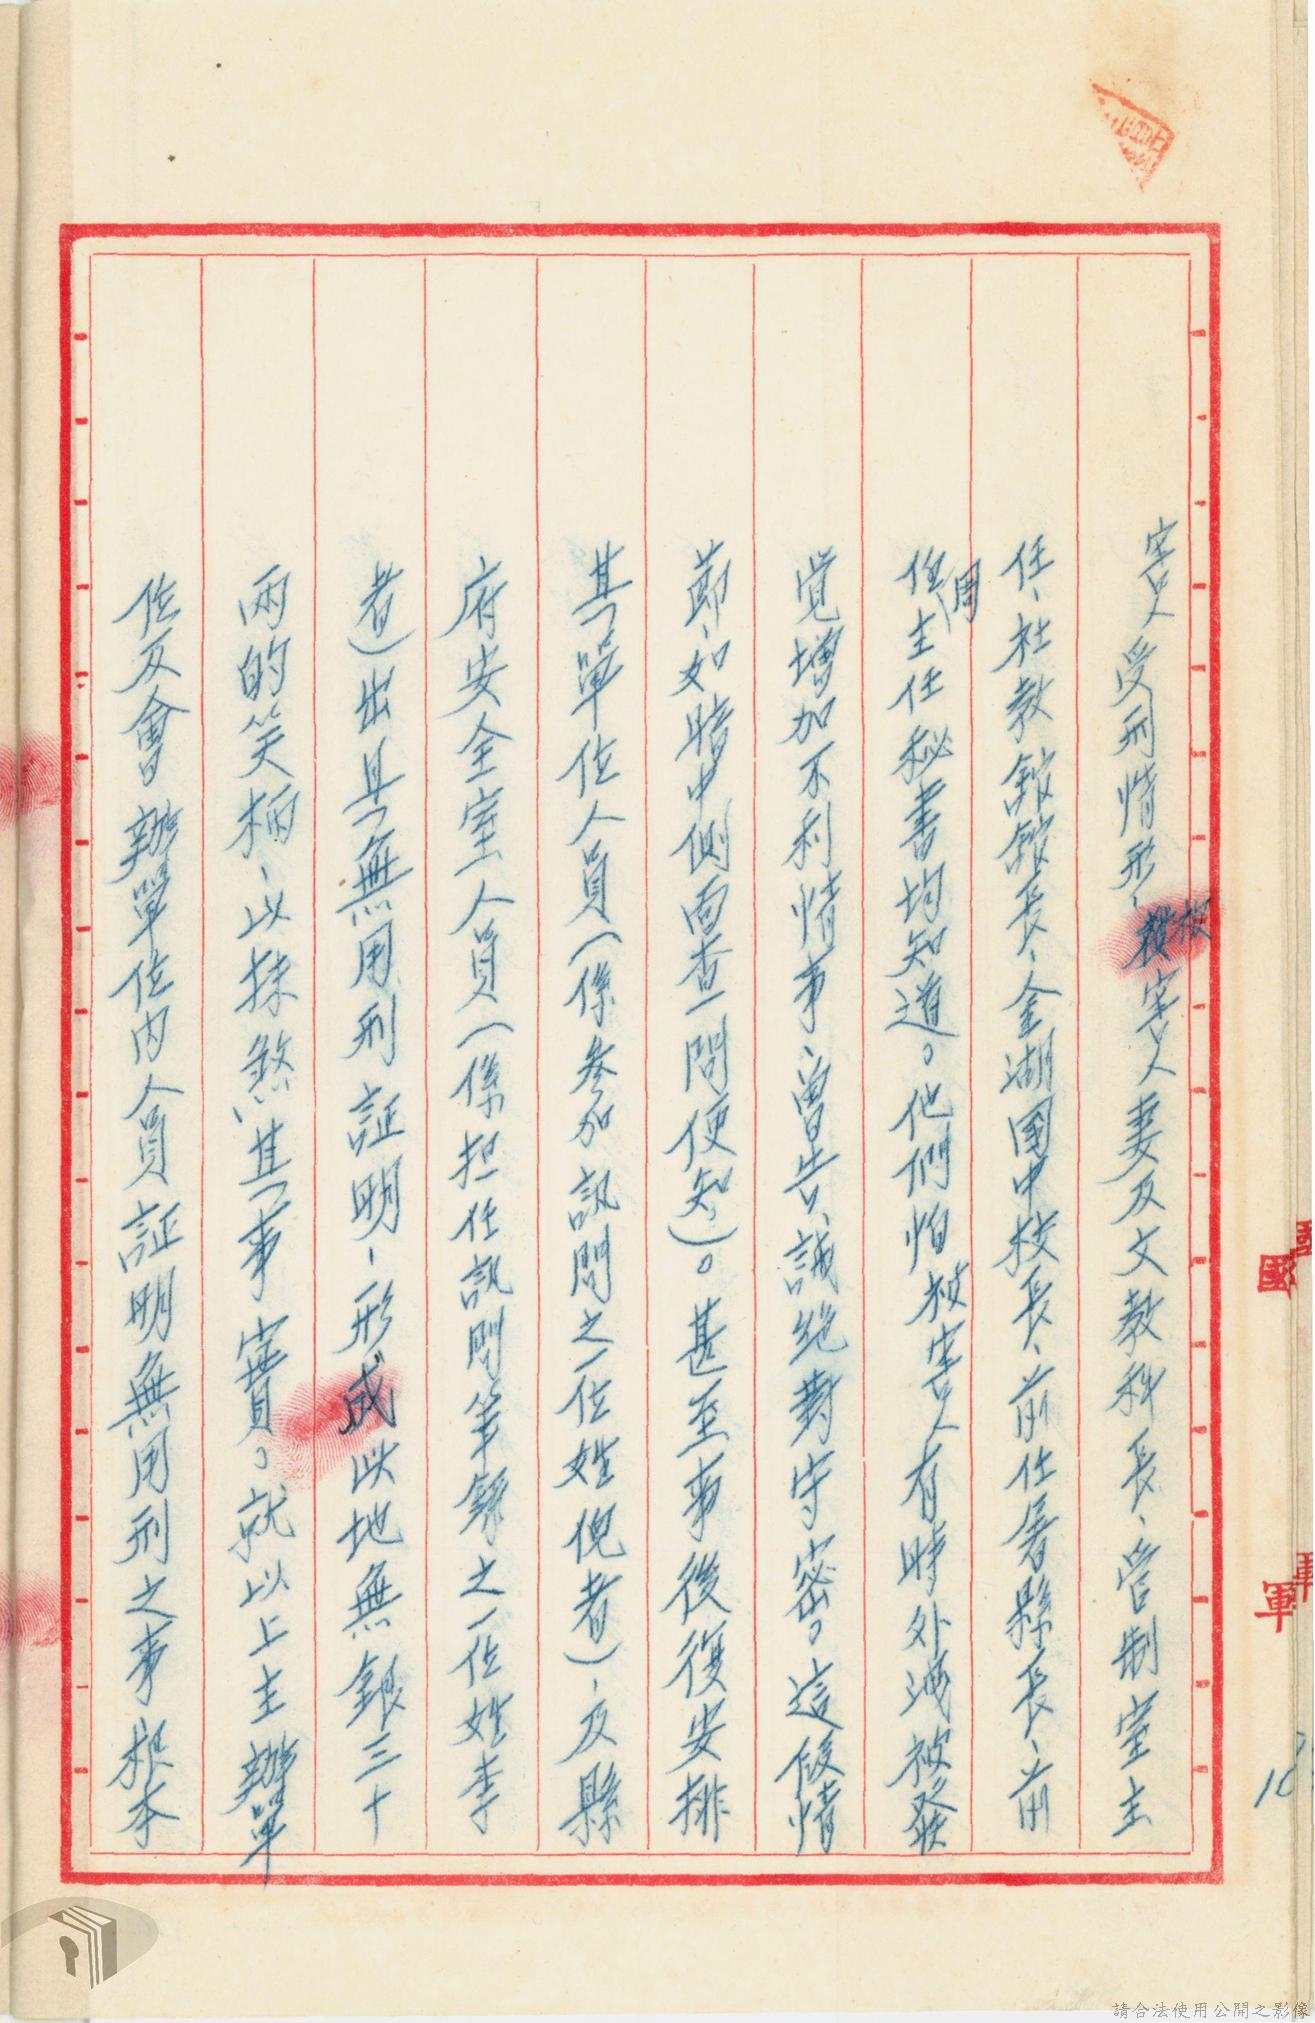 害人受刑情形、被害人妻及文教科長、管制室主
任、社教館館長、金湖國中校長、前任署縣長、前
任周主任秘書均知道。他們怕被害人有時外洩被發
覚增加不利情事、曾告誡絶對守密。這段情
節、如暗中側面查一問便知）。甚至事後復安排
其單位人員（係參加訊問之一位姓倪者）、及縣
府安全室人員（係担任訊問筆錄之一位姓李
者）出具無用刑証明、形成此地無銀三十
兩的笑柄、以抹煞其事實。就以上主辦單
位及會辦單位内人員証明無用刑之事根本
國
軍
10
請合法使用公開之影像